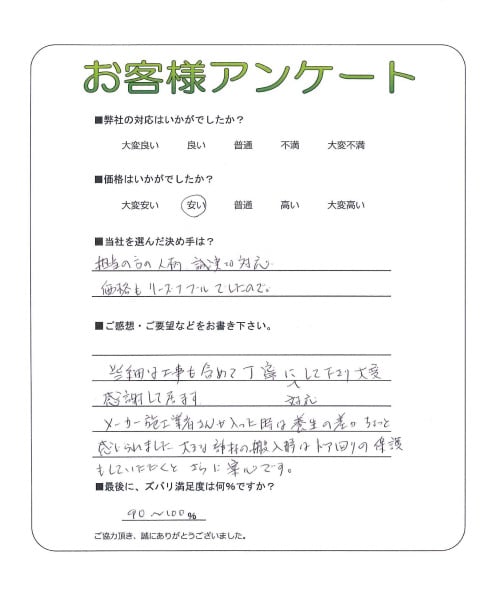 お客様アンケート
■弊社の対応はいかがでしたか？
大変良い 良い 普通 不満 大変不満
■価格はいかがでしたか？
大変安い 安い 普通 高い 大変高い
■当社を選んだ決め手は？
担当の方の人柄、誠実な対応。
価格もリーズナブルでしたので。
■ご感想・ご要望などをお書き下さい。
工事も含めて丁寧に対応して下さり大変
感謝して居ます
メーカー施工業者さんが入った時は養生の差がちょっと
感じられました 大きな部材の搬入時はドア回りの保護
もしていただくとさらに安心です。
■最後に、ズバリ満足度は何%ですか？
90〜100%
ご協力頂き、誠にありがとうございました。